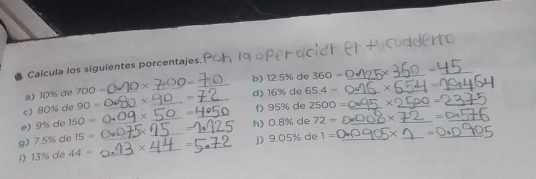 Calcula los siguientes porcentajes. Pon la operación en tu cuaderno
a) 10% de 700 = 0.10 × 700 = 70
b) 12.5% de 360 = 0.125 × 360 = 45
c) 80% de 90 = 0.80 × 90 = 72
d) 16% de 65.4 = 0.16 × 654 = 10.464
e) 9% de 150 = 0.09 × 50 = 4.050
f) 95% de 2500 = 0.95 × 2500 = 2375
g) 7.5% de 15 = 0.075 × 15 = 1.125
h) 0.8% de 72 = 0.008 × 72 = 0.576
i) 13% de 44 = 0.13 × 44 = 5.72
j) 9.05% de 1 = 0.0905 × 1 = 0.0905